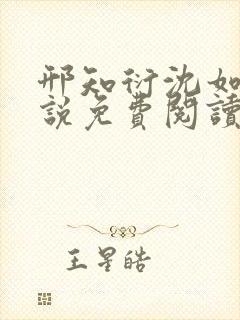 邢知衍沈如
說免費閱讀
王星皓